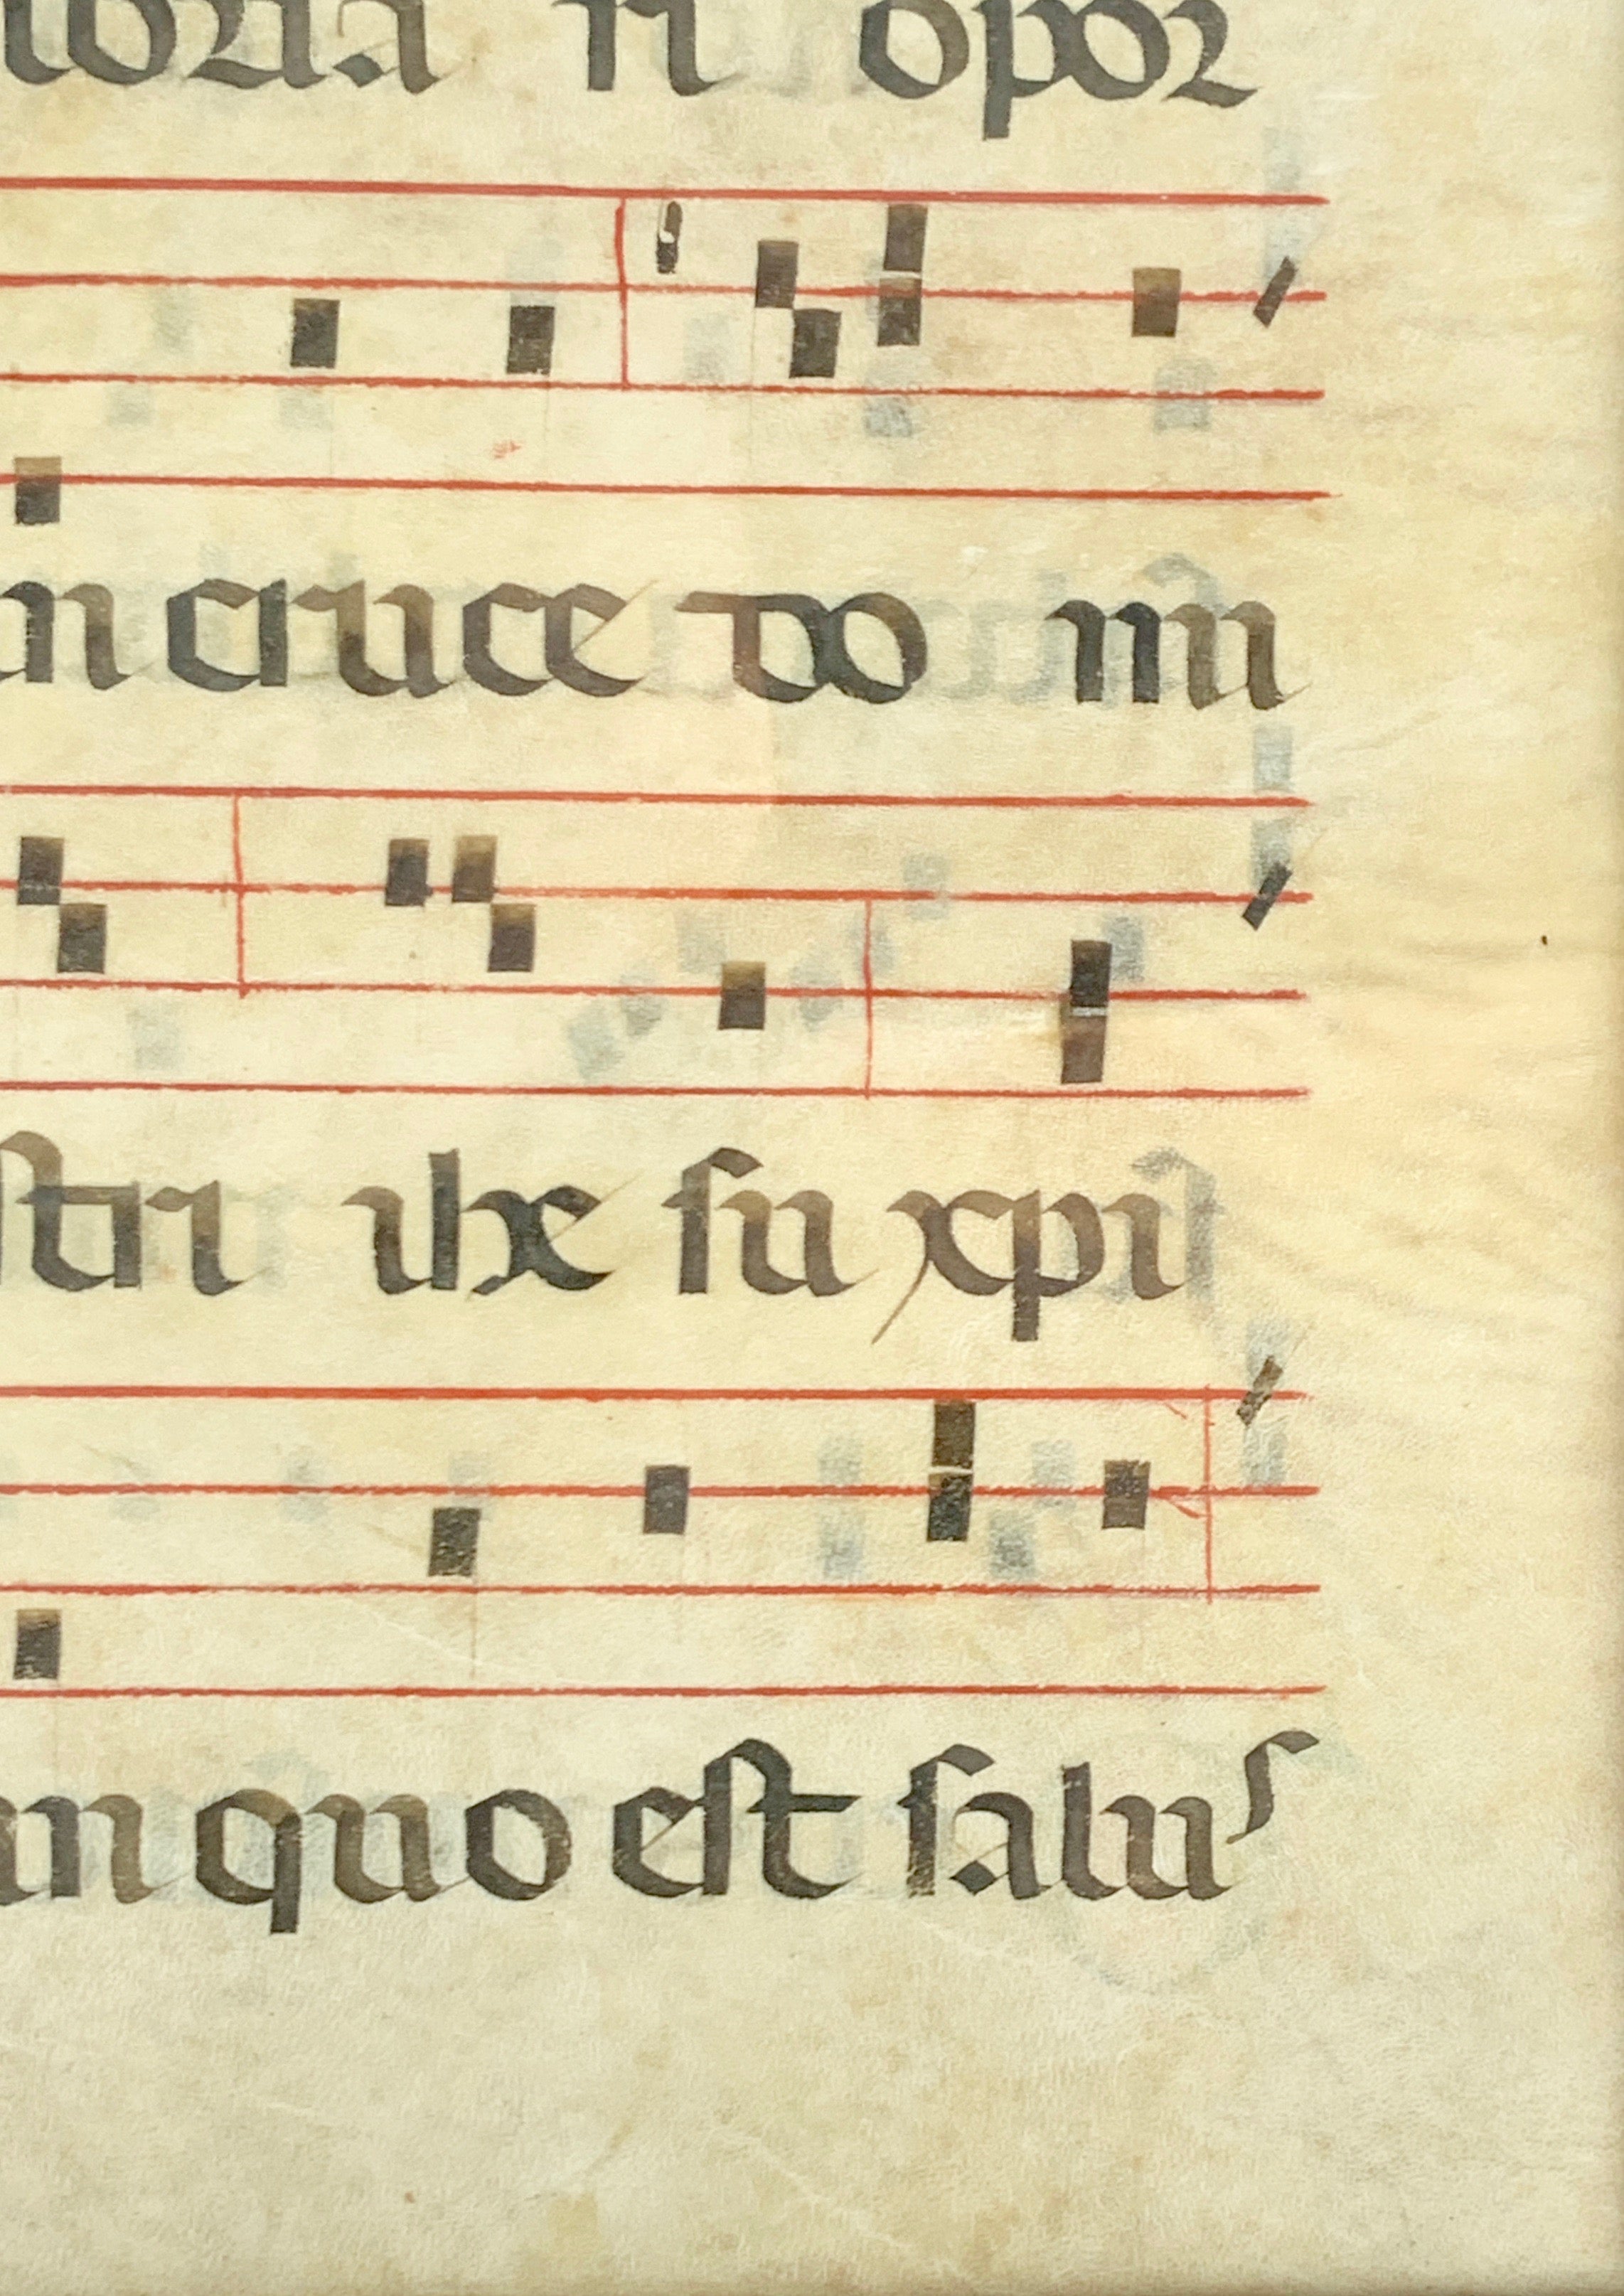 loria ri opor
in cruce do mi ni
stri ihe su xpi
in quo est salus